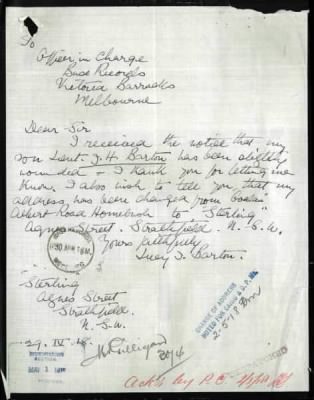 To
Officer in Charge
Base Records
Victoria Barracks
Melbourne
Dear Sir
I received the notice that my
son Lieut. J. H. Barton has been slightly
wounded & I thank you for letting me
know. I also wish to tell you that my
address has been changed from
Albert Road Homebush to "Sterling"
Agnes Street. Strathfield. N.S.W.
Yours faithfully
Lucy S. Barton.
30 APR 18
"Sterling
Agnes Street
Strathfield.
N.S.W.
29. IV. 18.
CHANGE OF ADDRESS
NOTED FOR
2-5-18
MAY 1918
Ack'd by P.C.